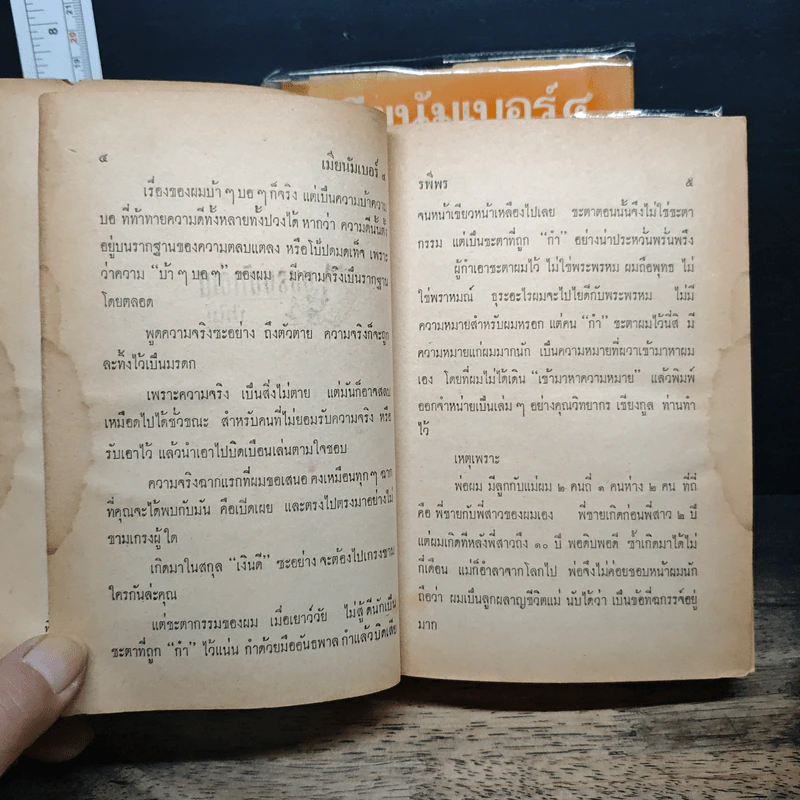 8
๔ เมียนัมเบอร์ ๔
เรื่องของผมบ้า ๆ บอ ๆ ก็จริง แต่เป็นความบ้าความ
บอ ที่ท้าทายความดีทั้งหลายทั้งปวงได้ หากว่า ความดีนั้นตั้ง
อยู่บนรากฐานของความตลบแตลง หรือโป้ปดมดเท็จ เพราะ
ว่าความ “บ้า ๆ บอ ๆ” ของผม มีความจริงเป็นรากฐาน
โดยตลอด
พูดความจริงซะอย่าง ถึงตัวตาย ความจริงก็จะถูก
ละทิ้งไว้เป็นมรดก
เพราะความจริง เป็นสิ่งไม่ตาย แต่มันก็อาจสลบ
เหมือดไปได้ชั่วขณะ สำหรับคนที่ไม่ยอมรับความจริง หรือ
รับเอาไว้ แล้วนำเอาไปบิดเบือนเล่นตามใจชอบ
ความจริงฉากแรกที่ผมขอเสนอ คงเหมือนทุกๆ ฉาก
ที่คุณจะได้พบกับมัน คือเปิดเผย และตรงไปตรงมาอย่างไม่
ขามเกรงผู้ใด
เกิดมาในสกุล “เงินดี” ซะอย่าง จะต้องไปเกรงขาม
ใครกันล่ะคุณ
แต่ชะตากรรมของผม เมื่อเยาว์วัย ไม่สู้ดีนักเป็น
ชะตาที่ถูก “กำ” ไว้แน่น กำด้วยมืออันธพาล กำแล้วบิดเสีย
ยนัมเบอร์ ๔
รพีพร ๕
จนหน้าเขียวหน้าเหลืองไปเลย ชะตาตอนนั้นจึงไม่ใช่ชะตา
กรรม แต่เป็นชะตาที่ถูก “กำ” อย่างน่าประหวั่นพรั่นพรึง
ผู้กำเอาชะตาผมไว้ ไม่ใช่พระพรหม ผมถือพุทธ ไม่
ใช่พราหมณ์ ธุระอะไรผมจะไปไอดีกับพระพรหม ไม่มี
ความหมายสำหรับผมหรอก แต่คน “กำ” ชะตาผมไว้นี่สิ มี
ความหมายแก่ผมมากนัก เป็นความหมายที่ผวาเข้ามาหาผม
เอง โดยที่ผมไม่ได้เดิน “เข้ามาหาความหมาย” แล้วพิมพ์
ออกจำหน่ายเป็นเล่ม ๆ อย่างคุณวิทยากร เชียงกูล ท่านทำ
ไว้
เหตุเพราะ
พ่อผม มีลูกกับแม่ผม ๒ คนถี่ ๑ คนห่าง ๒ คน ที่ถี่
คือ พี่ชายกับพี่สาวของผมเอง พี่ชายเกิดก่อนพี่สาว ๒ ปี
แต่ผมเกิดทีหลังพี่สาวถึง ๑๐ ปี พอดิบพอดี ซ้ำเกิดมาได้ไม่
กี่เดือน แม่ก็อำลาจากโลกไป พ่อจึงไม่ค่อยชอบหน้าผมนัก
ถือว่า ผมเป็นลูกผลาญชีวิตแม่ นับได้ว่า เป็นข้อที่ฉกรรจ์อยู่
มาก